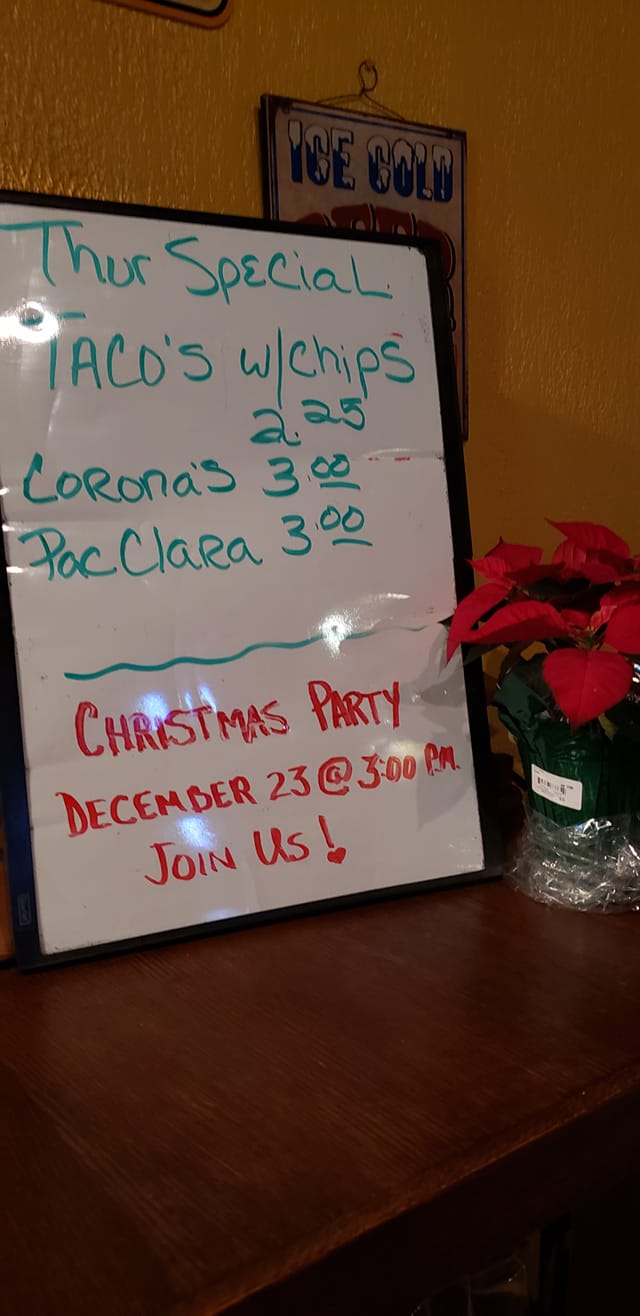 ICE COLD
Thur Special
TACO'S w/chips
2.25
Corona's 3.00
Pac Clara 3.00
CHRISTMAS PARTY
DECEMBER 23 @ 3:00 P.M.
JOIN US!